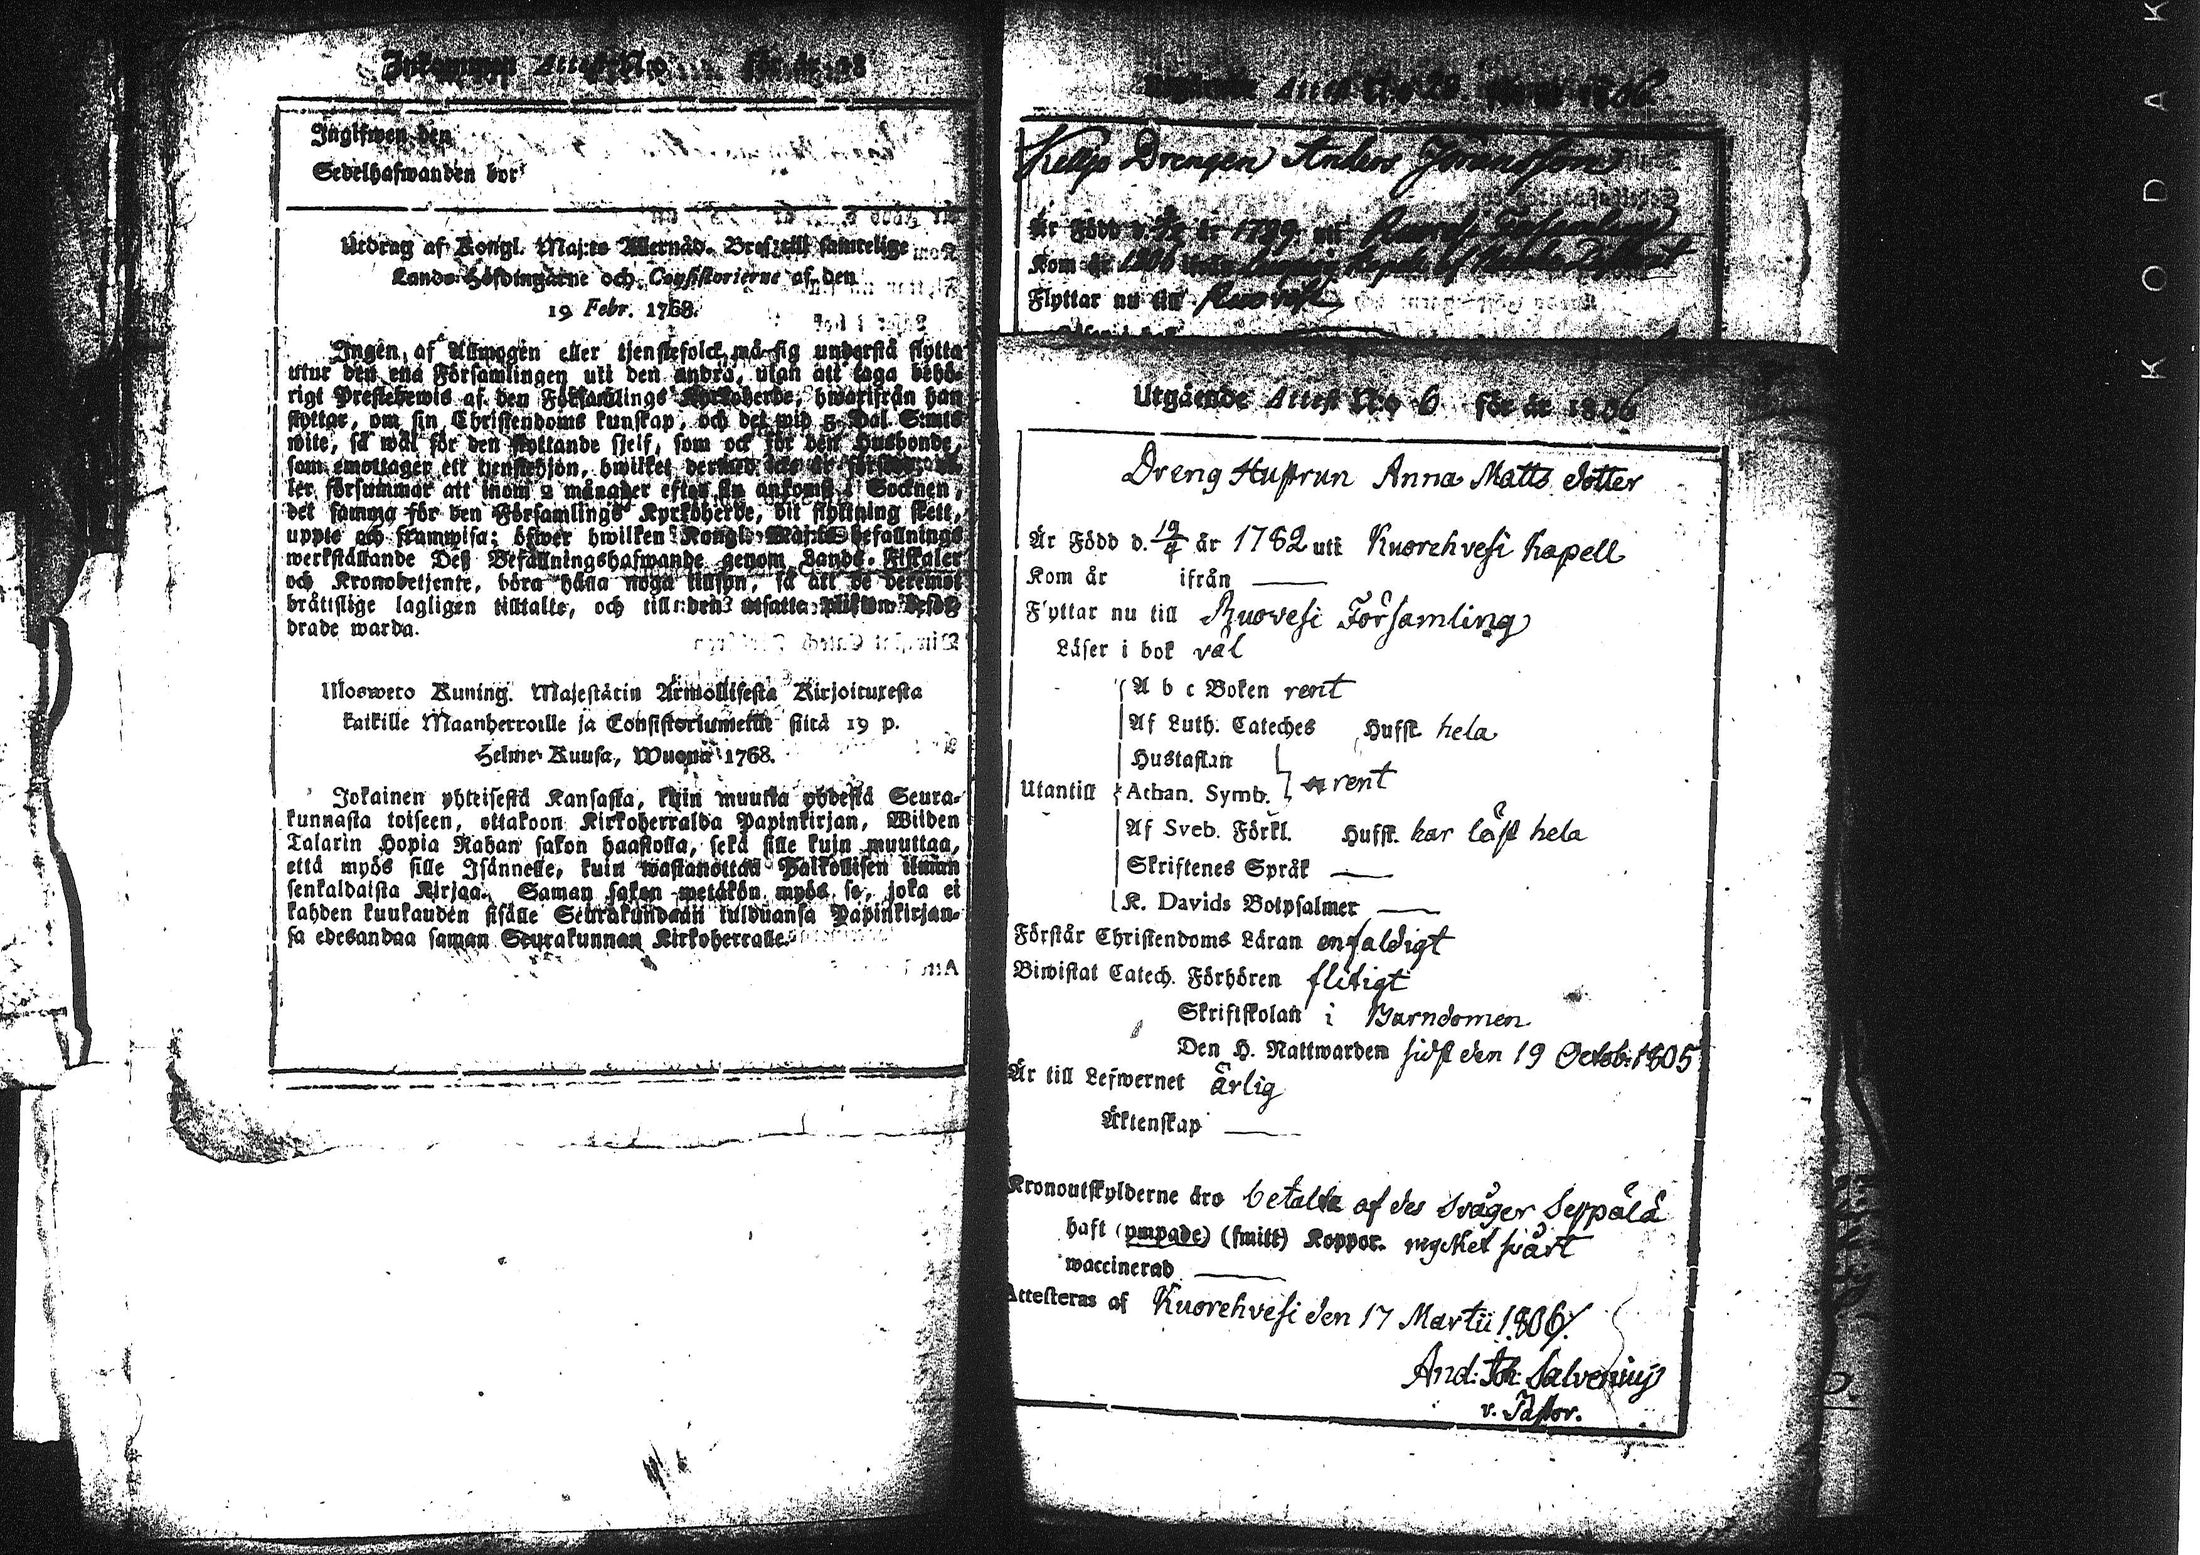 Inkommen Attest N:o för år 18
Ingifwen den
Sedelhafwanden bor
Utdrag af Kongl. Maj:ts Allernåd. Bref till samtelige
Lands-Höfdingarne och Consistorierne af den
19 Febr. 1768.
Ingen af Allmogen eller tjenstefolck må sig understå flytta
utur den ena Församlingen uti den andra, utan att taga behö-
rigt Prestebewis af den Församlings Kyrkoherde, hwarifrån han
flyttar, om sin Christendoms kunskap, och det wid 5 Dal. S:mts
wite, så wäl för den flyttande sjelf, som ock för den Husbonde,
som emottager ett tjenstehjon, hwilket dermed icke är
ler försummar att inom 2 månader efter sin ankomst i Socknen,
det samma för den Församlings Kyrkoherde, dit flyttning skett,
uppte och framwisa; öfwer hwilken Kongl. Maj:ts befallnings
werkställande Deß Befallningshafwande genom Lands-Fiskaler
och Kronobetjente, böra hålla noga tillsyn, så att de deremot
bråttslige lagligen tilltalte, och till den utsatte plikten befor-
drade warda.
Ulosweto Kuning. Majestätin Armollisesta Kirjoituxesta
kaikille Maanherroille ja Consistoriumeille siitä 19 p.
Helme-Kuusa, Wuona 1768.
Jokainen yhteisestä Kansasta, kuin muutta yhdestä Seura-
kunnasta toiseen, ottakoon Kirkoherralda Papinkirjan, Wiiden
Talarin Hopia Rahan sakon haastolla, sekä sille kuin muuttaa,
että myös sille Isännelle, kuin wastanottaa Palkollisen ilman
senkaldaista Kirjaa. Saman sakon wetäkön myös se, joka ei
kahden kuukauden sisälle Seurakundaan tulduansa Papinkirjan-
sa edesandaa saman Seurakunnan Kirkoherralle.
Utgående Attest N:o 20. för år 1806
Drengen Anders Johansson
Är Född d. år 1789 uti Ruovesi Församling
Kom år 1806 ifrån
Flyttar nu till Ruovesi
Utgående Attest N:o 6 för år 1806
Dreng Hustrun Anna Matts dotter
Är Född d. 19/9 år 1782 uti Kuorehvesi Kapell
Kom år ifrån —
Flyttar nu till Ruovesi Församling
Läser i bok väl
A b c Boken rent
Af Luth. Cateches Hufst. hela
Hustaflan
Utantill Athan. Symb. rent
Af Sveb. Förkl. Hufst. har läst hela
Skriftenes Språk —
K. Davids Botpsalmer —
Förstår Christendoms Läran enfaldigt
Biwistat Catech. Förhören flitigt
Skriftskolan i Barndomen
Den H. Nattwarden sidst den 19 Octob: 1805
Är till Lefwernet ärlig
Äktenskap —
Kronoutskylderne äro betalta af des Svåger Seppälä
haft (ympade) (smitt) Koppor. mycket svårt
waccinerad —
Attesteras af Kuorehvesi den 17 Martii 1806.
And: Joh: Salvenius
v. Pastor.
KODAK